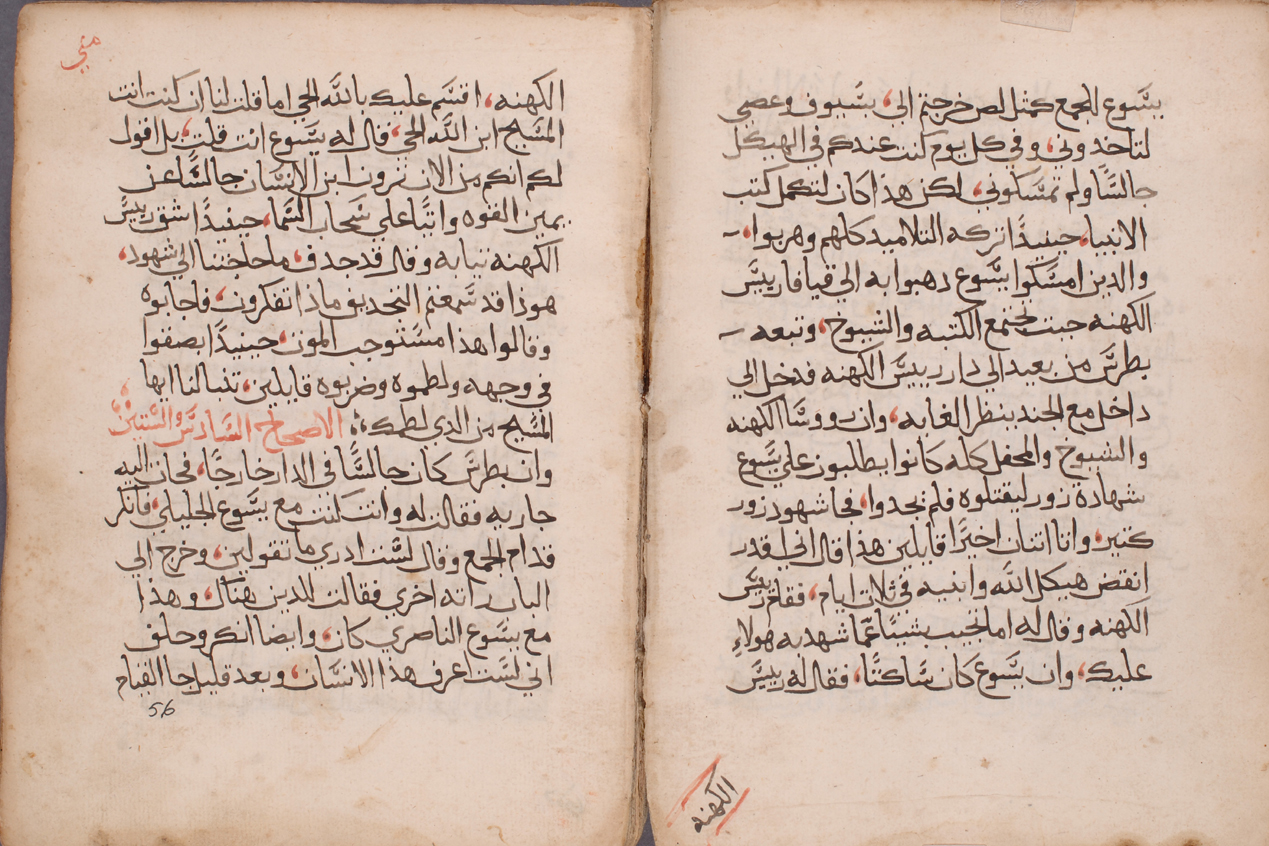 يسوع للجمع كمثل لص خرجتم الي، بسيوف وعصي
لتاخدوني، وفي كل يوم كنت عندكم في الهيكل
جالسًا ولم تمسكوني، لكن هذا كان لتكمل كتب
الانبيا، حينيدًا تركه التلاميد كلهم وهربوا،
والدين امسكوا يسوع دهبوا به الي قيافا رييس
الكهنه حيت تجتمع الكتبه والشيوخ، وتبعه
بطرس من بعيد الى دار رييس الكهنه فدخل الي
داخل مع الجند ينظر الغايه، وان رووسا الكهنه
والشيوخ والمحفل كله كانوا يطلبون علي يسوع
شهاده زور ليقتلوه فلم يجدوا، فجا شهود زور
كتير، واتا اتنان اخيرًا قايلين هذا قال اني اقدر
انقض هيكل الله وابنيه في ثلات ايام، فقام رييس
الكهنه وقال له اما تجيب بشييًا عما شهد به هولاءِ
عليك، وان يسوع كان ساكتًا، فقال له رييس
الكهنه
متي
الكهنه، اقسم عليك بالله الحي اما قلت لنا ان كنت انت
المسيح ابن الله الحي، قال له يسوع انت قلت، بل اقول
لكم انكم من الان ترون ابن الانسان جالسًا عن
يمين القوه واتيًا علي سحاب السما، حينيدًا شق رييس
الكهنه تيابه وقال قد جدف، ما حاجتنا الي شهود،
هوذا قد سمعتم التجديف ماذا تفكرون، فاجابوه
وقالوا هدا مستوجب الموت، حينيدًا بصقوا
في وجهه ولطموه وضربوه قايلين، تنبا لنا ايها
المسيح من الذي لطمك، الاصحاح السادس والستين
وان بطرس كان جالسًا في الدار خارجًا، فجات اليه
جاريه فقالت له وانت كنت مع يسوع الجليلي، فانكر
قدام الجمع وقال لست ادري ما تقولين، وخرج الي
الباب راته اخري فقالت للدين هناك، وهذا
مع يسوع الناصري كان، وايضا انكر وحلف
اني لست اعرف هذا الانسان، وبعد قليل جا القيام
56